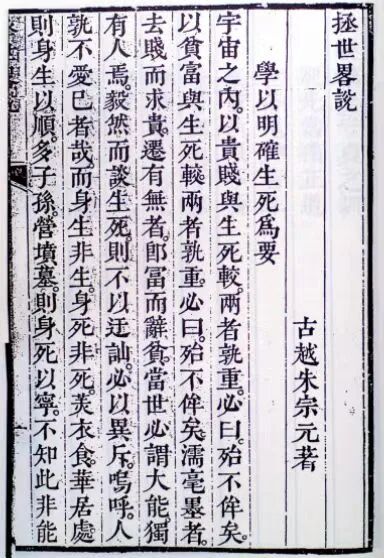 拯世畧說
古越朱宗元著
學以明確生死爲要
宇宙之內。以貴賤與生死較。兩者孰重。必曰。殆不侔矣。
以貧富與生死較。兩者孰重。必曰。殆不侔矣。濡毫墨者。
去賤而求貴。遷有無者。卽冨而辭貧。當世必謂大能。獨
有人焉。毅然而談生死。則不以迂訕。必以異斥。嗚呼。人
孰不愛已者哉。而身生非生。身死非死。美衣食。華居處
則身生以順。多子孫。營墳墓。則身死以寧。不知此非能